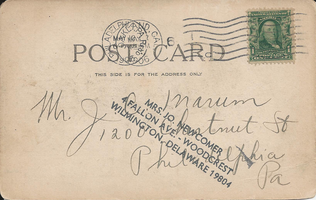 PHILADELPHIA
1906
6
POST CARD
THIS SIDE IS FOR THE ADDRESS ONLY
Mr. J. Marum
1208 Chestnut St
Philadelphia
Pa
MRS. JO. NEWCOMER
4 FALLON AVE. - WOODCREST
WILMINGTON, DELAWARE 19804